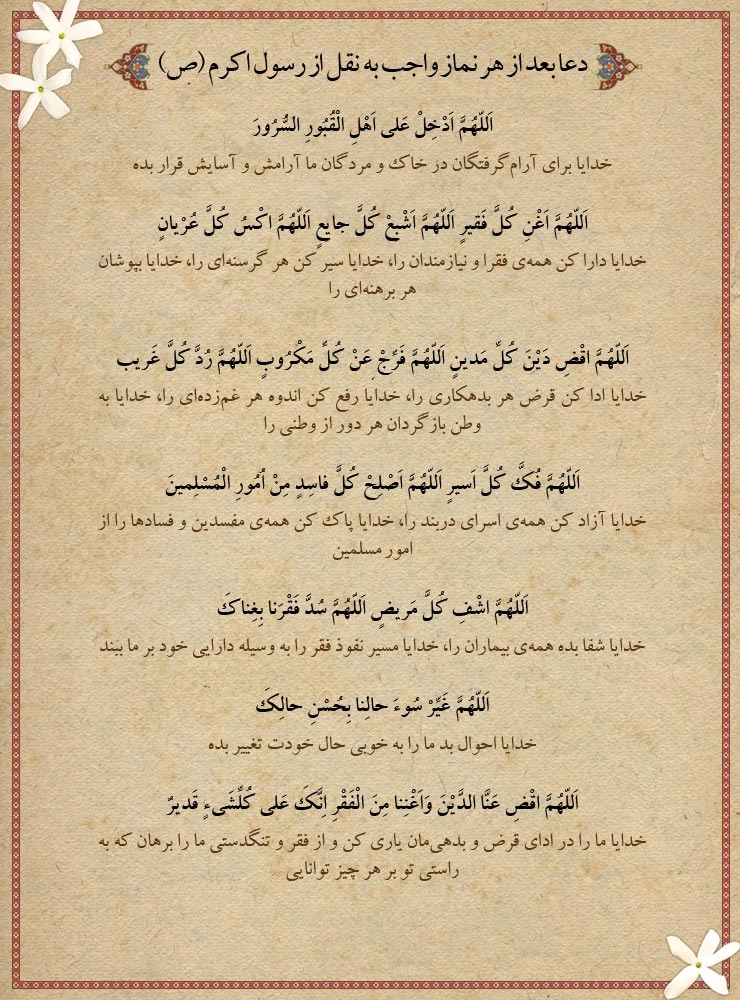 دعا بعد از هر نماز واجب به نقل از رسول اکرم (ص)
اَللّهُمَّ اَدْخِلْ عَلی اَهْلِ الْقُبُورِ السُّرُورَ
خدایا برای آرام‌گرفتگان در خاک و مردگان ما آرامش و آسایش قرار بده
اَللّهُمَّ اَغْنِ كُلَّ فَقیرٍ اَللّهُمَّ اَشْبِعْ كُلَّ جایِعٍ اَللّهُمَّ اكْسُ كُلَّ عُرْیانٍ
خدایا دارا کن همه‌ی فقرا و نیازمندان را، خدایا سیر کن هر گرسنه‌ای را، خدایا بپوشان
هر برهنه‌ای را
اَللّهُمَّ اقْضِ دَیْنَ كُلِّ مَدینٍ اَللّهُمَّ فَرِّجْ عَنْ كُلِّ مَكْرُوبٍ اَللّهُمَّ رُدَّ كُلَّ غَریب
خدایا ادا کن قرض هر بدهکاری را، خدایا رفع کن اندوه هر غم‌زده‌ای را، خدایا به
وطن بازگردان هر دور از وطنی را
اَللّهُمَّ فُكَّ كُلَّ اَسیرٍ اَللّهُمَّ اَصْلِحْ كُلَّ فاسِدٍ مِنْ اُمُورِ الْمُسْلِمینَ
خدایا آزاد کن همه‌ی اسرای دربند را، خدایا پاک کن همه‌ی مفسدین و فسادها را از
امور مسلمین
اَللّهُمَّ اشْفِ كُلَّ مَریضٍ اَللّهُمَّ سُدَّ فَقْرَنا بِغِناكَ
خدایا شفا بده همه‌ی بیماران را، خدایا مسیر نفوذ فقر را به وسیله دارایی خود بر ما ببند
اَللّهُمَّ غَیِّرْ سُوءَ حالِنا بِحُسْنِ حالِكَ
خدایا احوال بد ما را به خوبی حال خودت تغییر بده
اَللّهُمَّ اقْضِ عَنَّا الدَّیْنَ وَاَغْنِنا مِنَ الْفَقْرِ اِنَّكَ عَلی كُلِّشَیءٍ قَدیرٌ
خدایا ما را در ادای قرض و بدهی‌مان یاری کن و از فقر و تنگدستی ما را برهان که به
راستی تو بر هر چیز توانایی